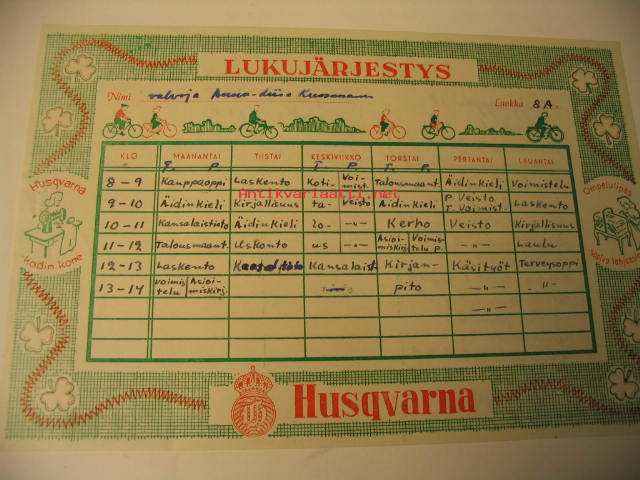 LUKUJÄRJESTYS
Nimi valvoja
Luokka 8A.
KLO MAANANTAI TIISTAI KESKIVIIKKO TORSTAI PERJANTAI LAUANTAI
8-9 Kauppaoppi Laskento Koti- Voimist. Talousmaant. Äidinkieli Voimistelu
9-10 Äidinkieli Kirjallisuus ta- Veisto Äidinkieli P Veisto T. Voimist. Laskento
10-11 Kansalaistieto Äidinkieli lo- -"- Kerho Veisto Kirjallisuus
11-12 Talousmaant. Uskonto us -"- Asioimiskirj. Voimistelu p. -"- Laulu
12-13 Laskento Kansalaist. Kirjan- Käsityöt Terveysoppi
13-14 Voimistelu Asioimiskirj. pito -"- -"-
-"-
Husqvarna
kodin kone
Ompelulipas
Antikvariaatti.net
Husqvarna